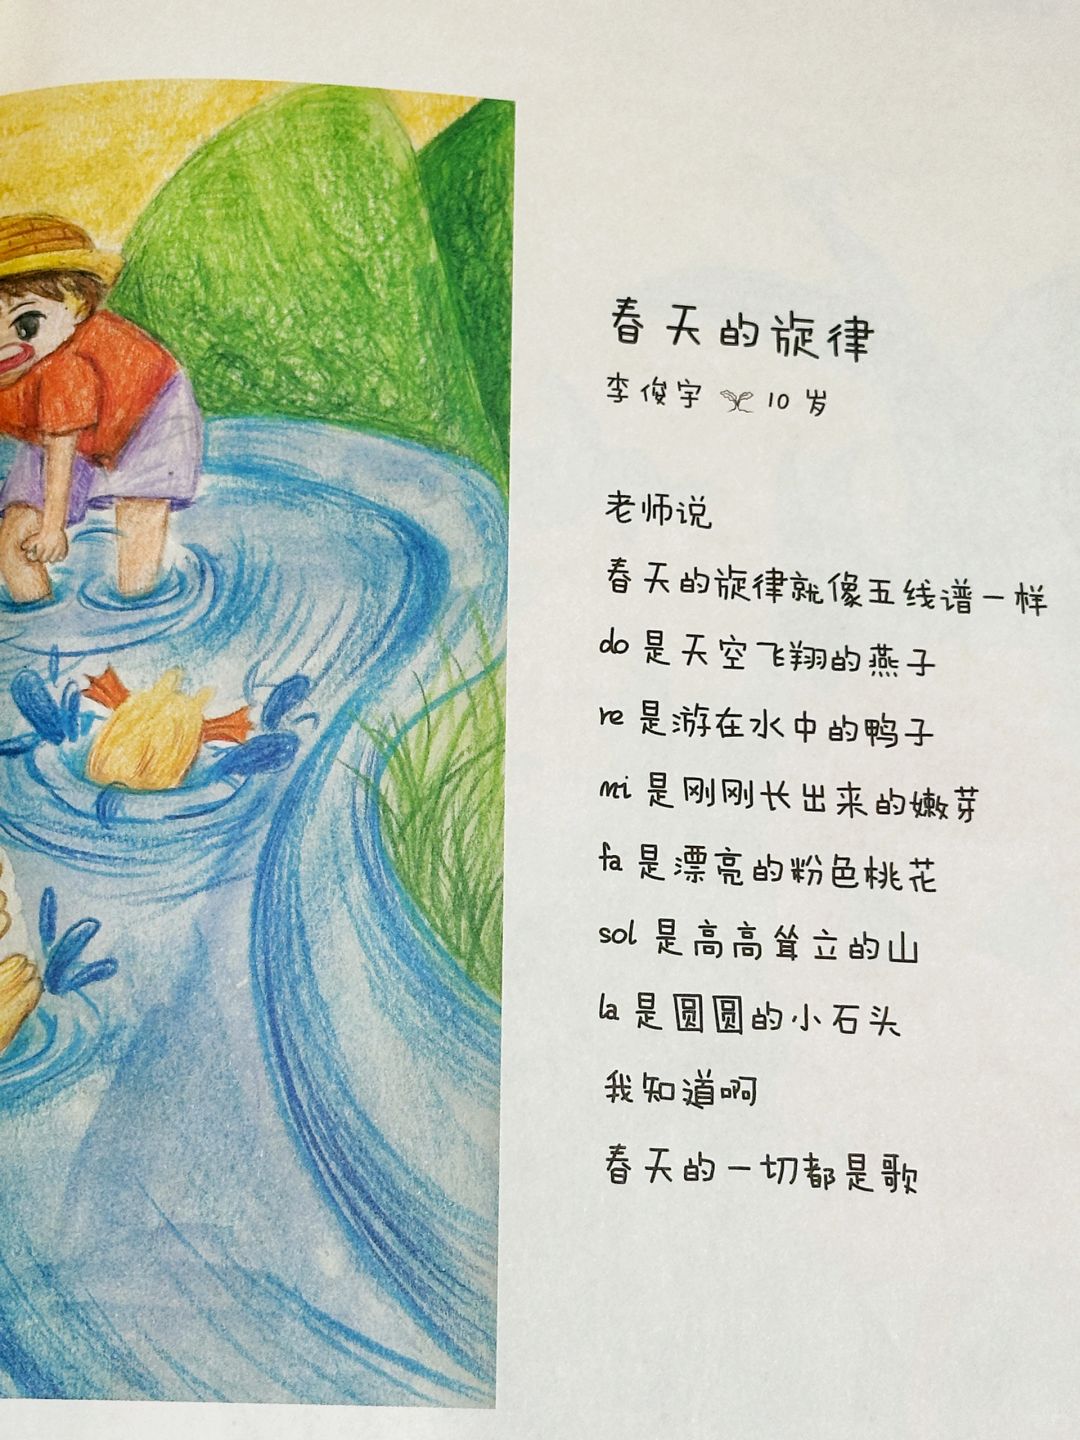 春天的旋律
李俊宇 10岁
老师说
春天的旋律就像五线谱一样
do 是天空飞翔的燕子
re 是游在水中的鸭子
mi 是刚刚长出来的嫩芽
fa 是漂亮的粉色桃花
sol 是高高耸立的山
la 是圆圆的小石头
我知道啊
春天的一切都是歌